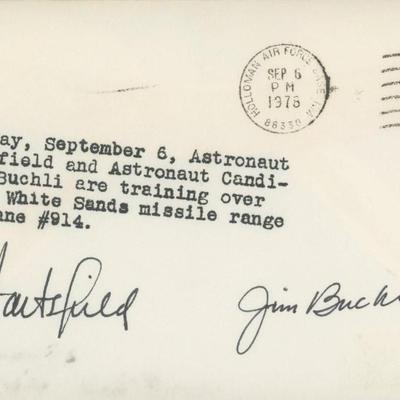 HOLLOMAN AIR FORCE BASE N.M.
SEP 6
PM
1978
88330
ay, September 6, Astronaut
field and Astronaut Candi-
Buchli are training over
White Sands missile range
ane #914.
artsfield
Jim Buch